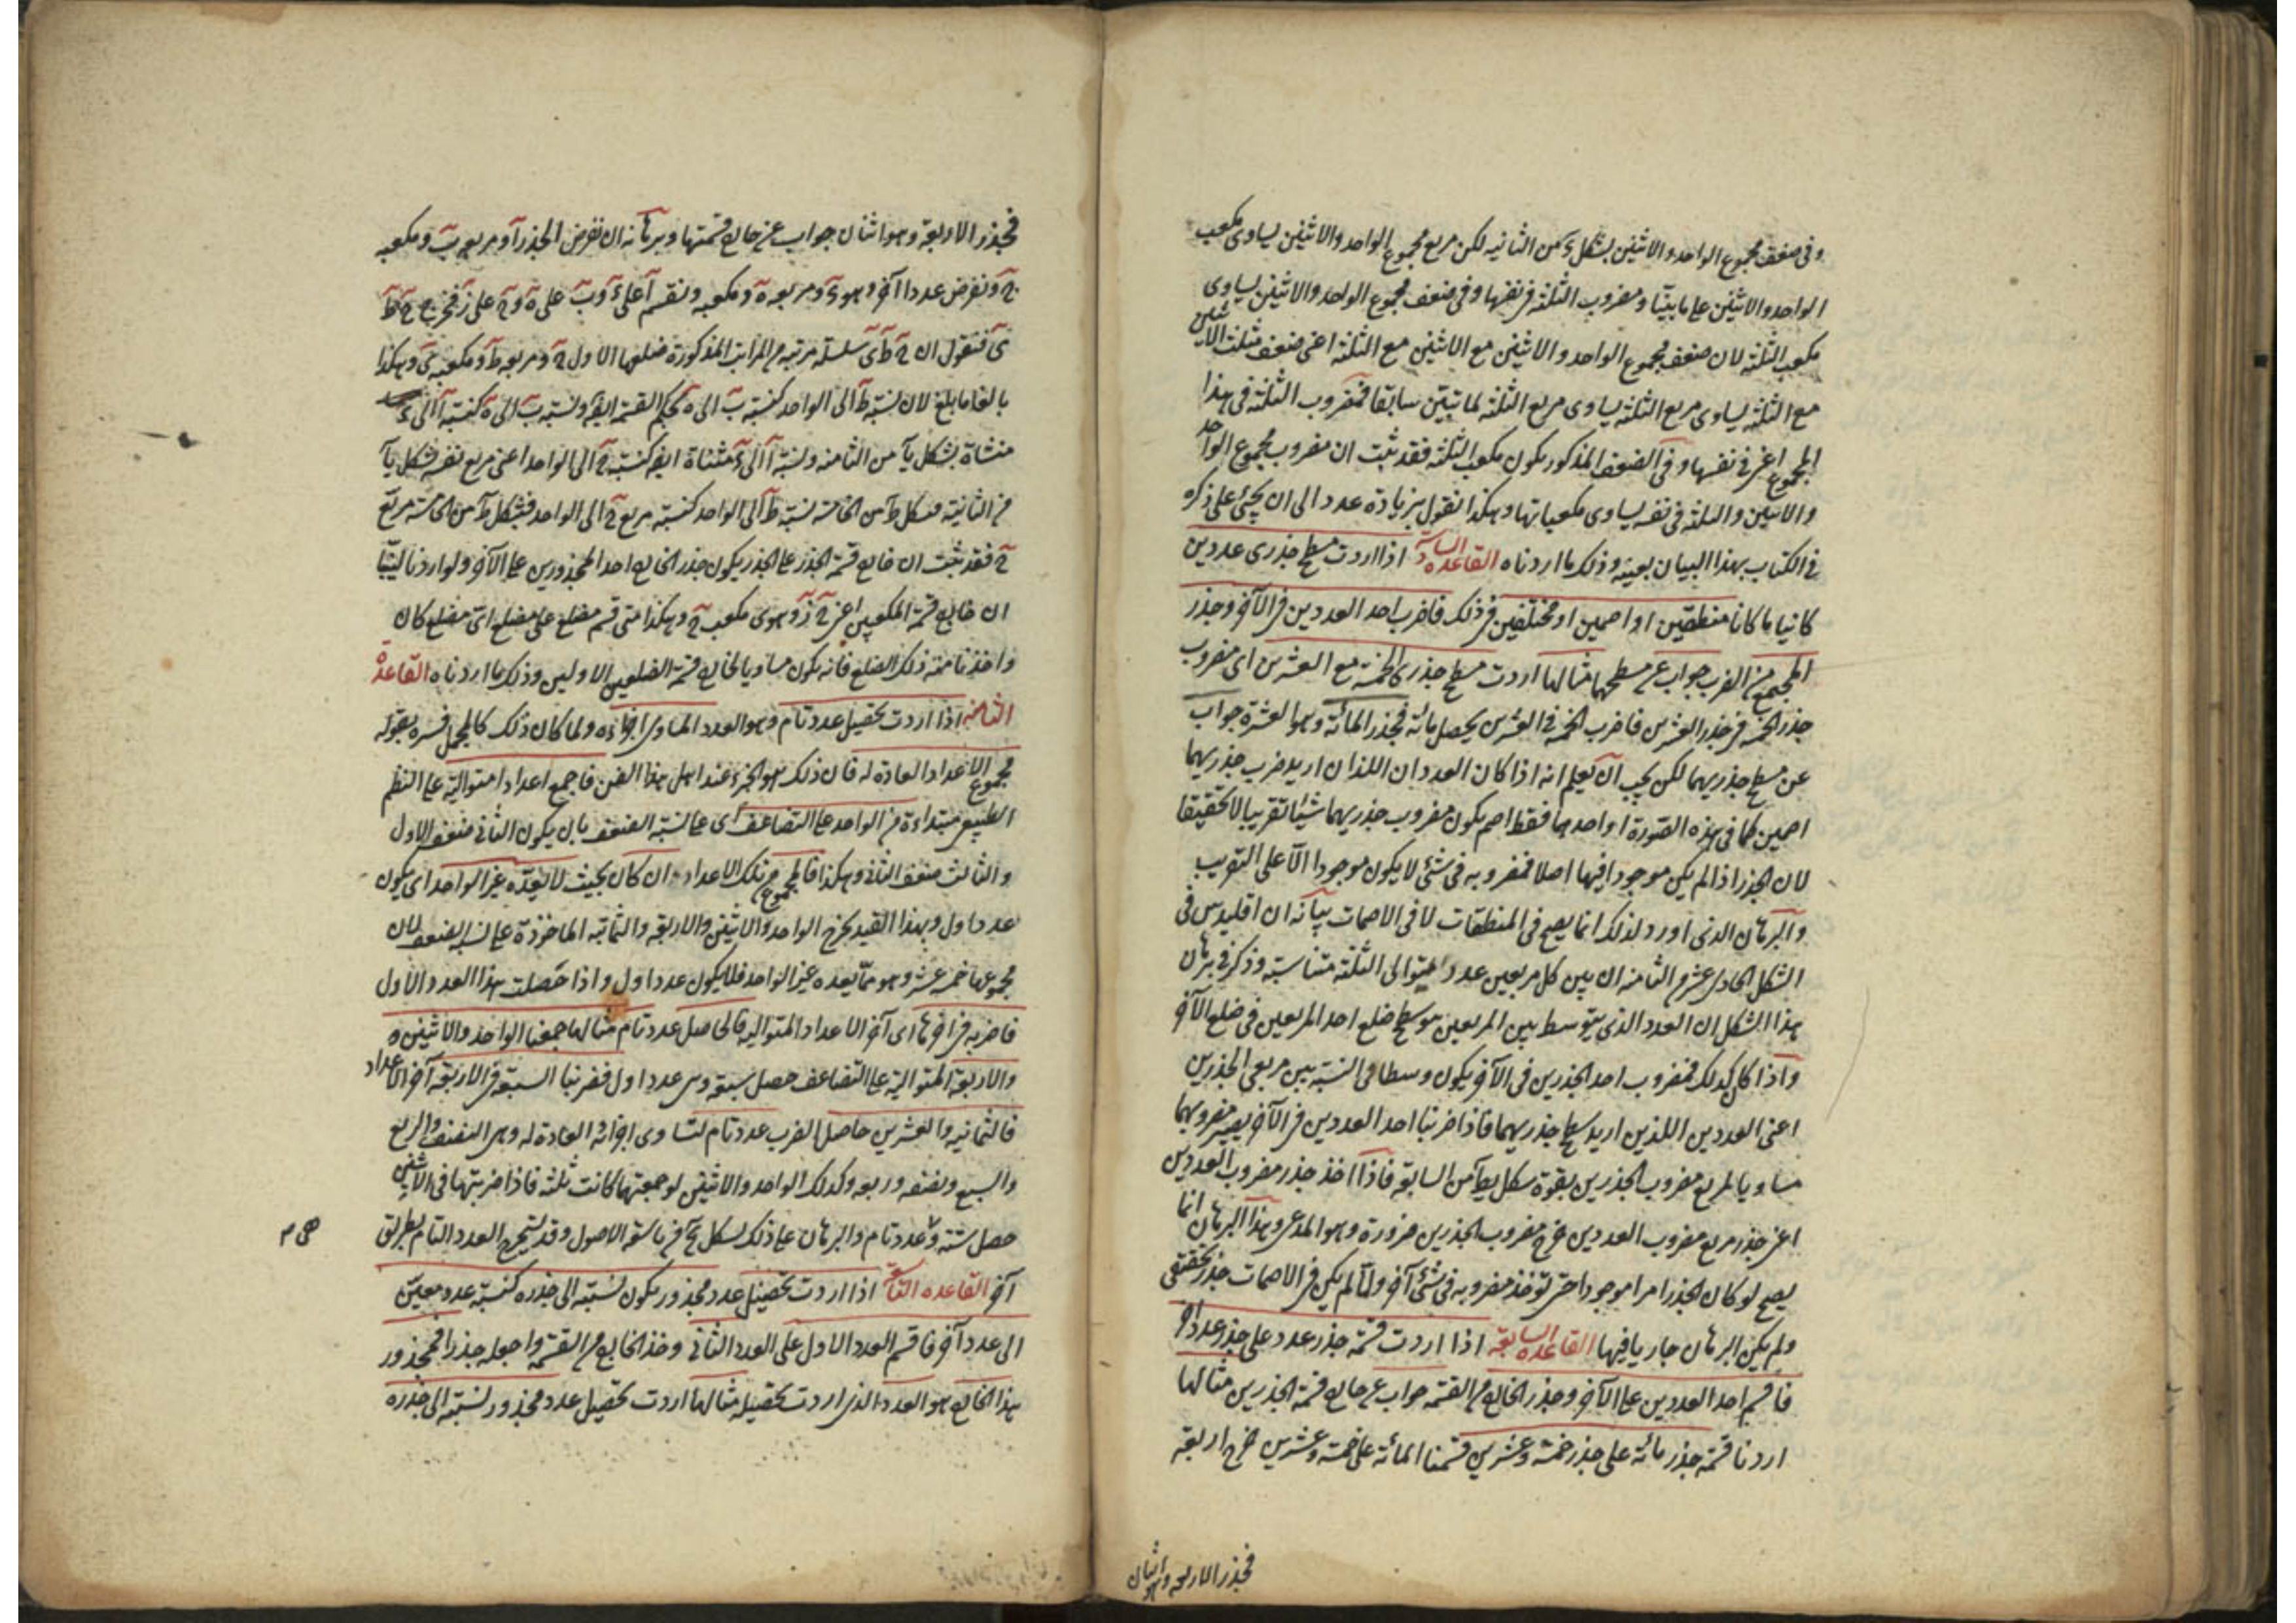 وفى ضعف مجموع الواحد والاثنين بشكل ى من الثانيه لكن مربع مجموع الواحد والاثنين يساوى مكعب
الواحد والاثنين على ما بيّنا ومضروب الثلثة فى نفسها وفى ضعف مجموع الواحد والاثنين يساوى
مكعب الثلثة لان ضعف مجموع الواحد والاثنين مع الاثنين مع الثلثة اعنى ضعف مثلث الاثنين
مع الثلثة يساوى مربع الثلثة يساوى مربع الثلثة لما تبيّن سابقا فمضروب الثلثة فى هذا
المجموع اعنى فى نفسها وفى الضعف المذكور يكون مكعب الثلثة فقد ثبت ان مضروب مجموع الواحد
والاثنين والثلثة فى نفسه يساوى مكعباتها وهكذا نقول بزيادة عدد الى ان يجئ على ذكره
فى الكتاب بهذا البيان بعينه وذلك ما اردناه القاعدة السادسة اذا اردت مسطح جذرى عددين
كانيا ما كانا منطقين او اصمين او مختلفين فى ذلك فاضرب احد العددين فى الآخر وجذر
المجتمع من الضرب جواب عن مسطحهما مثالها اردت مسطح جذرى الخمسة مع العشرين اى مضروب
جذر الخمسة فى جذر العشرين فاضرب الخمسة فى العشرين يحصل مائة فجذر المائة وهو العشرة جواب
عن مسطح جذريهما لكن يجب ان يعلم انه اذا كان العددان اللذان اريد ضرب جذريهما
اصمين كما فى هذه الصورة او احدهما فقط اصم يكون مضروب جذريهما شيئا تقريبا لا تحقيقا
لان الجذر اذا لم يكن موجودا فيها اصلا فمضروبه فى شئ لا يكون موجودا الّا على التقريب
والبرهان الذى اورد لذلك انما يصح فى المنطقات لا فى الاصمات بيانه ان اقليدس فى
الشكل الحادى عشر من الثامنه ان بين كل مربعين عدد متوالى الثلثة متناسبة وذكر فى برهان
هذا الشكل ان العدد الذى يتوسط بين المربعين هو مسطح ضلع احد المربعين فى ضلع الآخر
واذا كان كذلك فمضروب احد الجذرين فى الآخر يكون وسطا فى النسبة بين مربعى الجذرين
اعنى العددين اللذين اريد مسطح جذريهما فاذا ضربنا احد العددين فى الآخر يصير مضروبهما
مساويا لمربع مضروب الجذرين بقوة شكل يط من السابعة فاذا اخذ جذر مضروب العددين
اعنى جذر مربع مضروب العددين خرج مضروب الجذرين ضرورة وهو المدعى وهذا البرهان انما
يصح لو كان الجذر امرا موجودا حتى تؤخذ مضروبه فى شئ آخر ولمّا لم يكن فى الاصمات جذر تحقيقى
ولم يكن البرهان جاريا فيها القاعدة السابعة اذا اردت قسمة جذر عدد على جذر عدد آخر
فاقسم احد العددين على الآخر وجذر الخارج من القسمة جواب عن خارج قسمة الجذرين مثالها
اردنا قسمة جذر مائة على جذر خمسة وعشرين قسمنا المائة على خمسة وعشرين خرج اربعة
فجذر الاربعة وهو اثنان
فجذر الاربعة وهو اثنان جواب عن خارج قسمتها وبرهانه ان نفرض الجذر آ ومربعه ب ومكعبه
ج ونفرض عددا آخر وهو ء ومربعه ه ومكعبه ونقسم آ على ء وب على ه وج على ز فخرج ح ط
ى فنقول ان ح ط ى سلسلة مرتبة من المراتب المذكورة ضلعها الاول ح ومربعه ط ومكعبه ى وهكذا
بالغا ما بلغ لان نسبة ط الى الواحد كنسبة ب الى ه بحكم القسمة ايضا ونسبة ب الى ه كنسبة آ الى ء
مثناة بشكل يآ من الثامنه ونسبة آ الى ء مثناة ايض كنسبة ح الى الواحد اعنى مربع نفسه بشكل يآ
من الثانية فبشكل ط من الخامسة نسبة ط الى الواحد كنسبة مربع ح الى الواحد فبشكل ط من الخامسة مربع
ح فقد ثبت ان خارج قسمة الجذر على الجذر يكون جذر الخارج احد المجذورين على الآخر ولو اردنا لبيّنا
ان خارج قسمة المكعبين اعنى ج ز وهو ى مكعب ح وهكذا متى قسم مضلع على مضلع اىّ مضلع كان
واخذنا منه ذلك الضلع فانه يكون مساويا لخارج قسمة الضلعين الاولين وذلك ما اردناه القاعدة
الثامنه اذا اردت تحصيل عدد تام وهو العدد المساوى اجزاءه ولما كان ذلك كالمجمل فسره بقوله
مجموع الاعداد العادة له فان ذلك هو الجزء عند اهل هذا الفن فاجمع اعدادا متوالية على النظم
الطبيعى مبتداءة من الواحد على التضاعف اى على نسبة الضعف بان يكون الثانى ضعف الاول
والثالث ضعف الثانى وهكذا فالمجموع من تلك الاعداد ان كان بحيث لا يعدّه غير الواحد اى يكون
عددا اول وبهذا القيد يخرج الواحد والاثنين والاربعة والثمانية الماخوذة على نسبة الضعف لان
مجموعها خمسة عشر وهو ممّا يعده غير الواحد فلا يكون عددا اول واذا حصلت هذا العدد الاول
فاضربه فى آخرها اى آخر الاعداد المتوالية فالحاصل عدد تام مثالها جمعنا الواحد والاثنين ه
والاربعة المتوالية على التضاعف حصل سبعة وهى عدد اول فضربنا السبعة فى الاربعة آخر الاعداد
فالثمانية والعشرين حاصل الضرب عدد تام لتساوى اجزائه العادة له وهى النصف والربع
والسبع ونصفه وربعه وكذلك الواحد والاثنين لو جمعتها كانت ثلثة فاذا ضربتها فى الاثنين
حصل ستة وهى عدد تام والبرهان على ذلك بشكل من تاسعة الاصول وقد يستخرج العدد التام بطريق
آخر القاعدة التاسعة اذا اردت تحصيل عدد مجذور يكون نسبته الى جذره كنسبة عدد معيّن
الى عدد آخر فاقسم العدد الاول على العدد الثانى وخذ الخارج من القسمة واجعله جذرا فمجذور
هذا الخارج هو العدد الذى اردت تحصيله مثالها اردت تحصيل عدد مجذور نسبته الى جذره